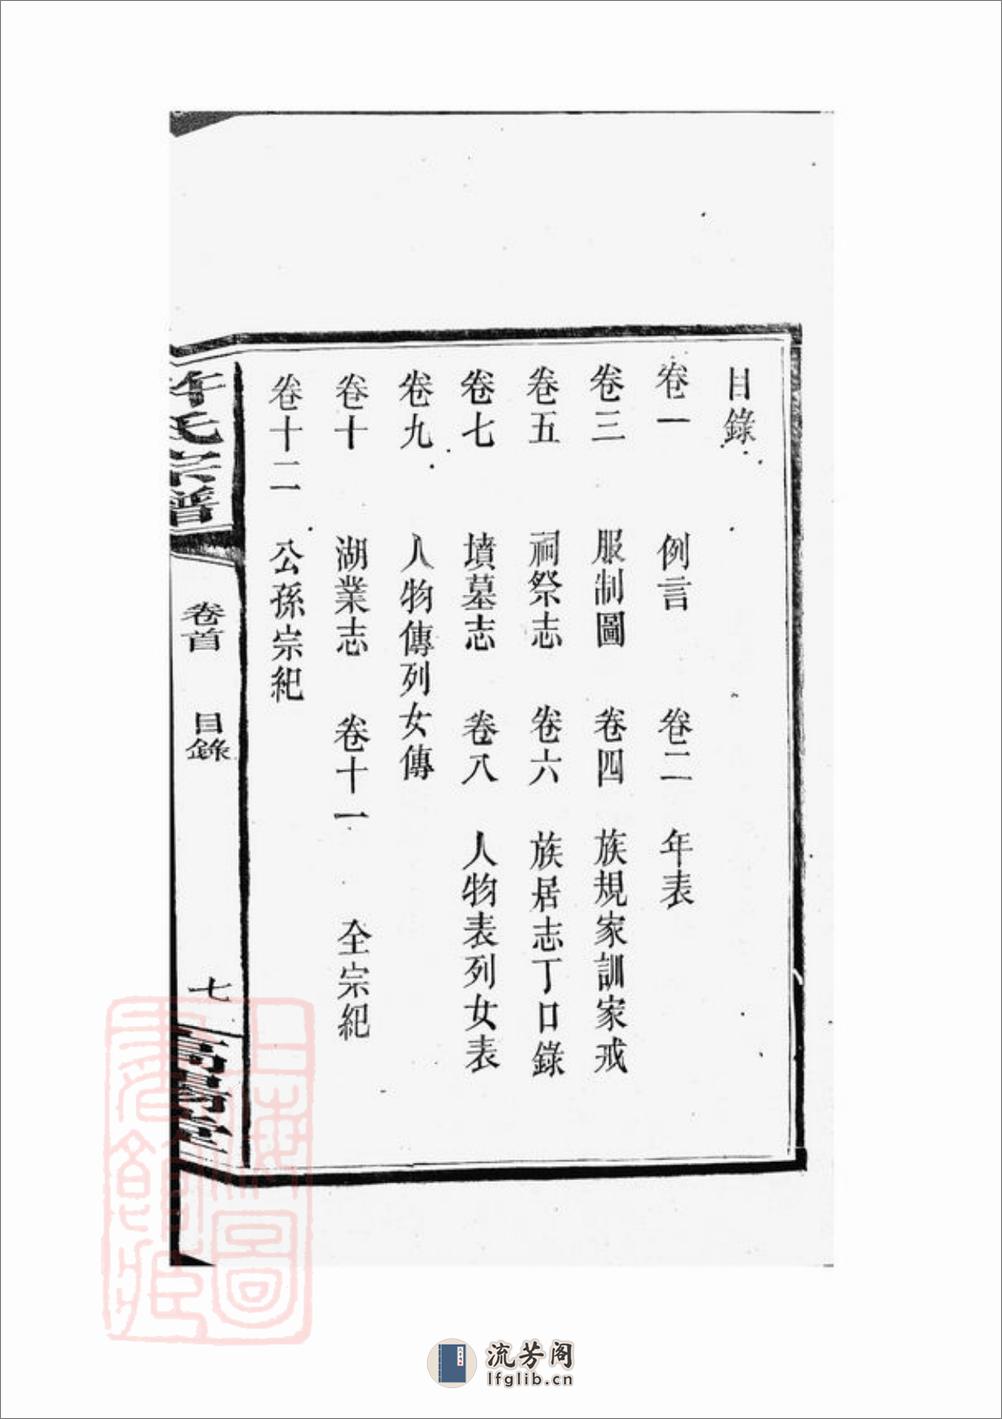 目錄
卷一 例言 卷二 年表
卷三 服制圖 卷四 族規家訓家戒
卷五 祠祭志 卷六 族居志丁口錄
卷七 墳墓志 卷八 人物表列女表
卷九 人物傳列女傳
卷十 湖業志 卷十一 全宗紀
卷十二 公孫宗紀
許氏宗譜 卷首 目錄 七 高陽堂
上海圖書館藏
流芳阁
lfglib.cn